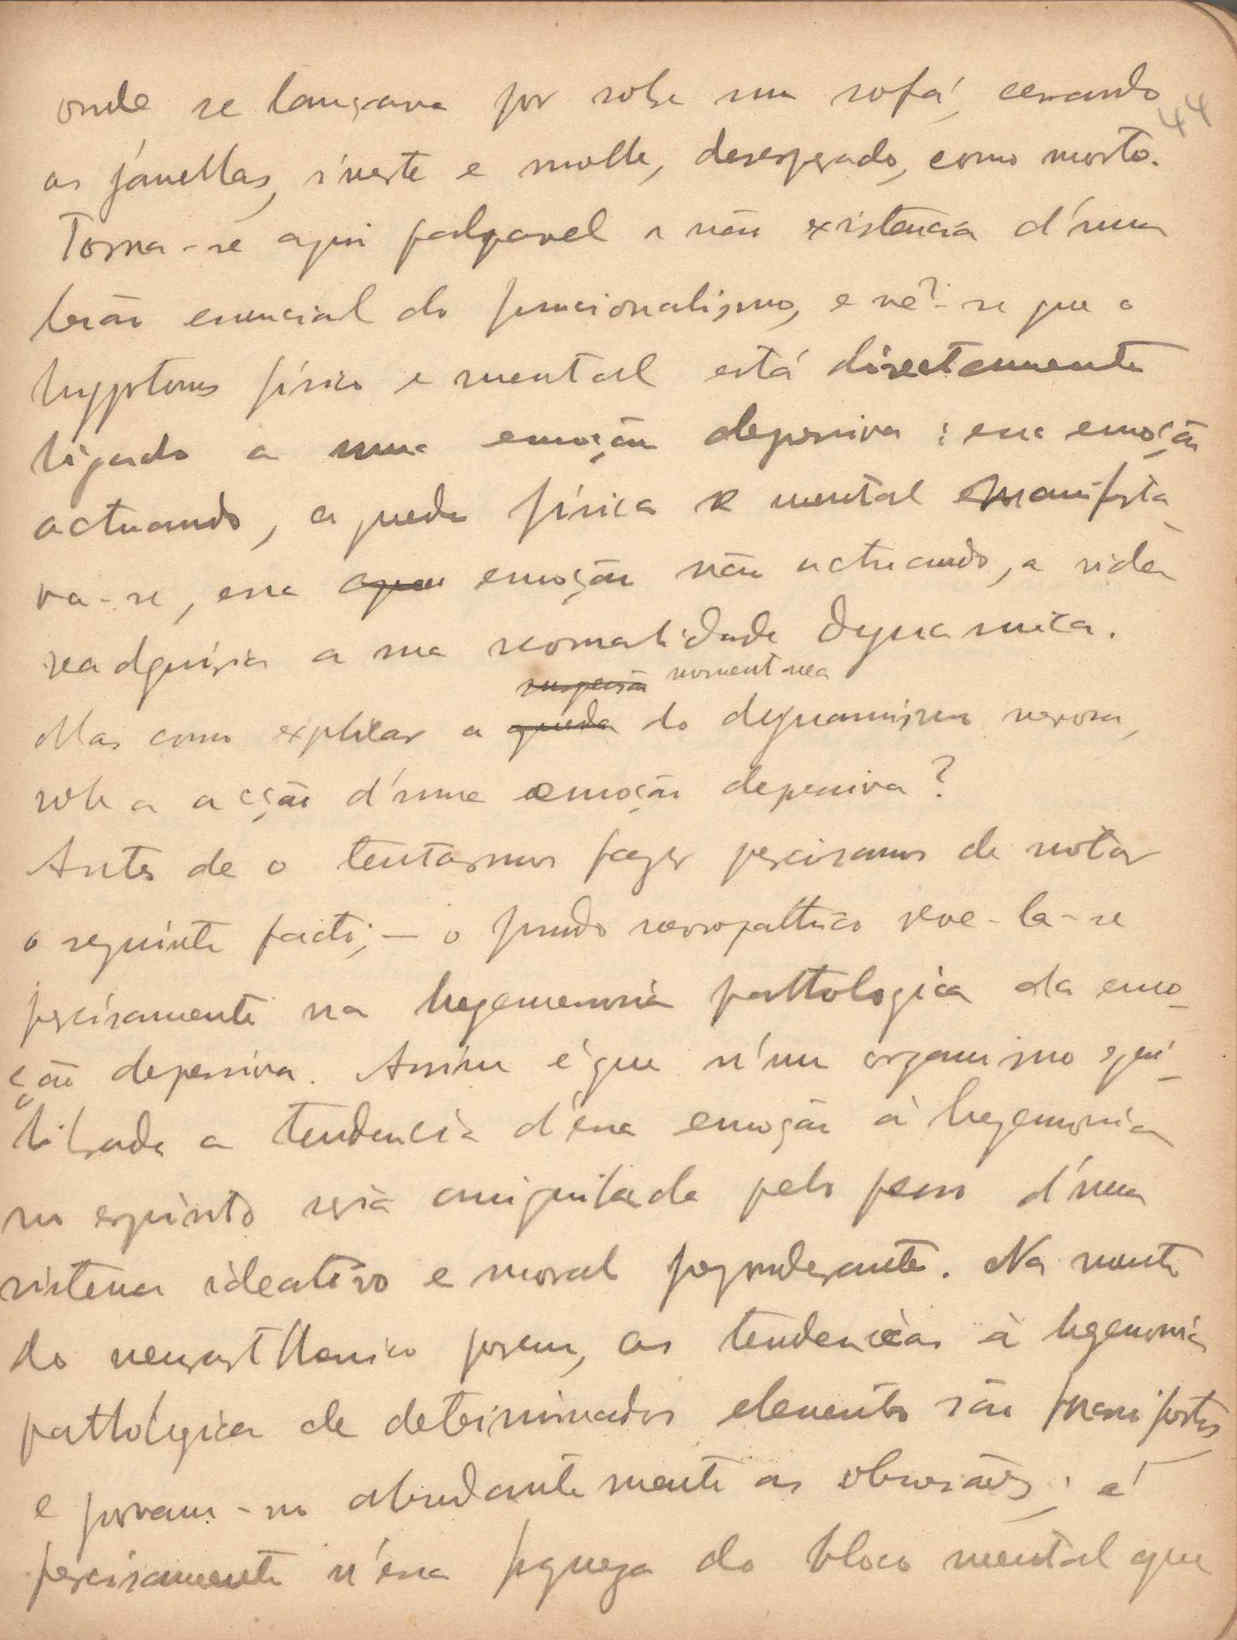 onde se lançava por sobre um sofá, cerrando
44
as janellas, inerte e molle, desesperado, como morto.
Torna-se aqui palpavel a não existencia d'uma
lesão essencial do funcionalismo, e vê-se que o
hypotonus físico e mental está directamente
ligado a uma emoção depressiva: essa emoção
actuando, a queda física e mental manifesta
va-se, essa emoção não actuando, a vida
readquiria a sua normalidade dynamica.
suspensão momentanea
Mas como explicar a queda do dynamismo nervoso,
sob a acção d'uma emoção depressiva?
Antes de o tentarmos fazer precisamos de notar
o seguinte facto; — o fundo nevropathico reve-la-se
precisamente na hegemonia pathologica da emo-
ção depressiva. Assim é que n'um organismo equi-
librado a tendencia d'essa emoção á hegemonia
no espirito seria aniquilada pelo peso d'um
sistema ideativo e moral preponderante. Na mente
do neurasthenico porem, as tendencias á hegemonia
pathologica de determinados elementos são manifestas,
e provam-no abundantemente as obsessões; é
precisamente n'essa fraqueza do bloco mental que